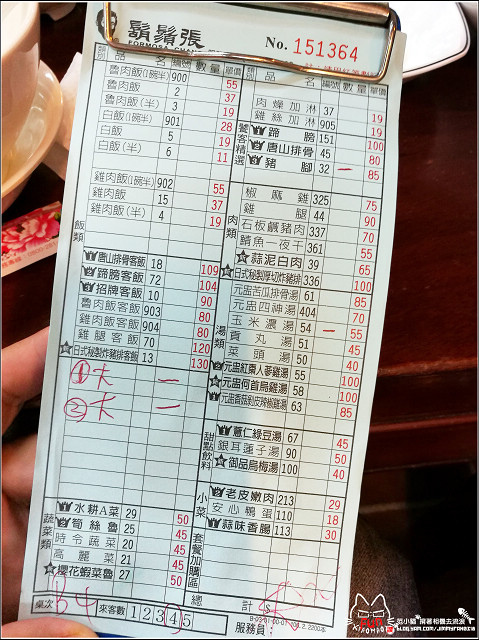 鬍鬚張
FORMOSA CHANG
No. 151364
類別 品名 編號 數量 單價
魯肉飯(1碗半) 900 55
魯肉飯 2 37
魯肉飯(半) 3 19
白飯(1碗半) 901 28
白飯 5 19
白飯(半) 6 11
雞肉飯(1碗半) 902 55
雞肉飯 15 37
雞肉飯(半) 4 19
飯類
唐山排骨客飯 18 109
蹄膀客飯 72 104
招牌客飯 10 90
魯肉飯客飯 903 80
雞肉飯客飯 904 80
雞腿客飯 70 120
日式秘製炸豬排客飯 13 130
① 卡 一
② 卡 一
蔬菜類
水耕A菜 29 50
筍絲魯 25 45
時令蔬菜 20 45
高麗菜 21 45
櫻花蝦菜魯 27 50
桌次 B4 來客數 1 2 3 4 5
肉燥加淋 37 19
雞絲加淋 905 19
饕客精選
蹄膀 151 100
唐山排骨 45 80
豬腳 32 一 85
肉類
椒麻雞 325 75
雞腿 44 90
石板鹹豬肉 337 70
鯖魚一夜干 361 55
蒜泥白肉 39 65
日式秘製厚切炸豬排 336 100
湯類
元盅苦瓜排骨湯 61 85
元盅四神湯 404 70
玉米濃湯 54 一 55
貢丸湯 51 45
菜頭湯 50 40
元盅紅棗人蔘雞湯 55 100
元盅何首烏雞湯 58 100
元盅香菇剝皮辣椒雞湯 63 85
甜點飲料
薏仁綠豆湯 67 45
銀耳蓮子湯 90 50
御品烏梅湯 100 40
小菜
老皮嫩肉 213 29
安心鴨蛋 110 18
蒜味香腸 113 30
套餐加購區
總計
服務員